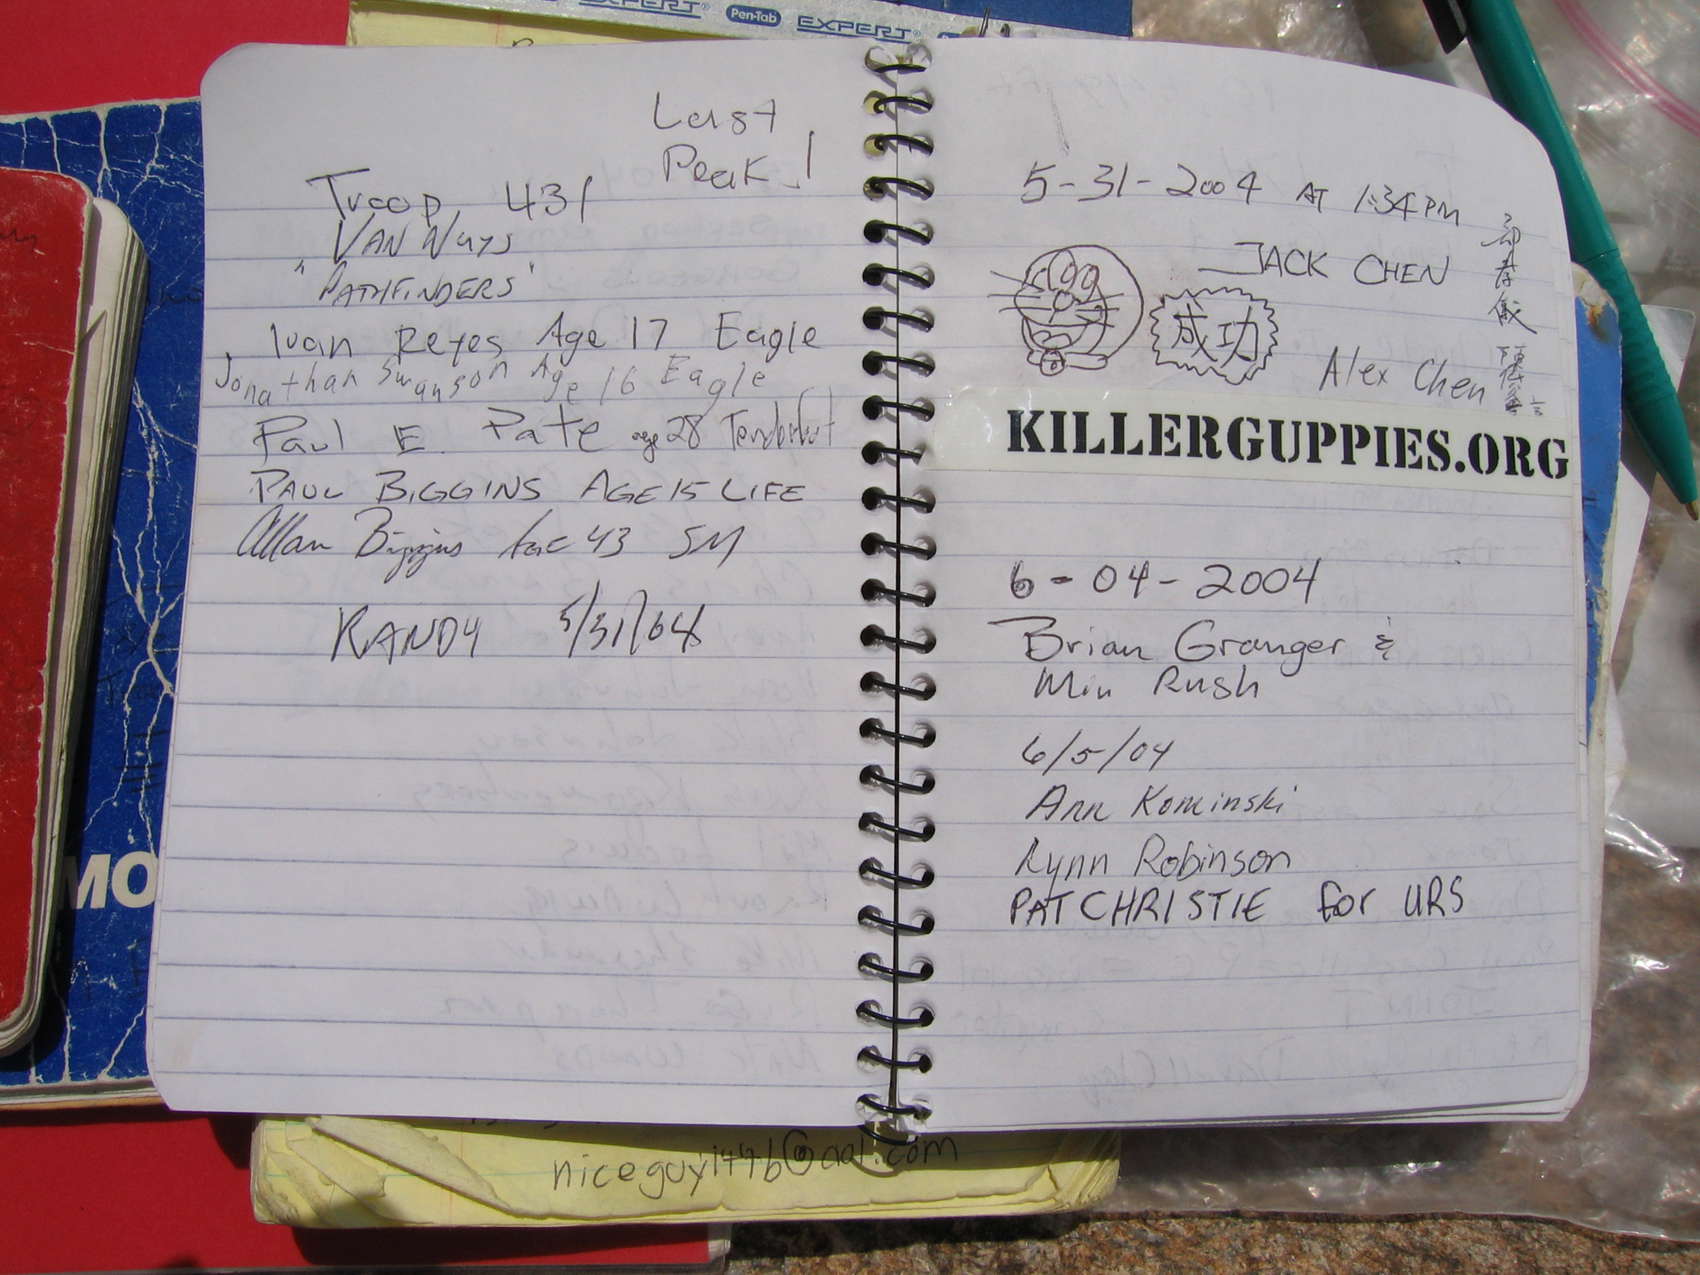 EXPERT Pen-Tab EXPERT
Last
Peak !
Troop 431
VAN NUYS
"PATHFINDERS"
Ivan Reyes Age 17 Eagle
Jonathan Swanson Age 16 Eagle
Paul E. Pate age 28 Tenderfoot
PAUL BIGGINS AGE 15 LIFE
Allan Biggins Age 43 SM
RANDY 5/31/04
5-31-2004 AT 1:34 PM
JACK CHEN
成功
Alex Chen
KILLERGUPPIES.ORG
6-04-2004
Brian Granger &
Min Rush
6/5/04
Ann Kominski
Lynn Robinson
PAT CHRISTIE for URS
MO